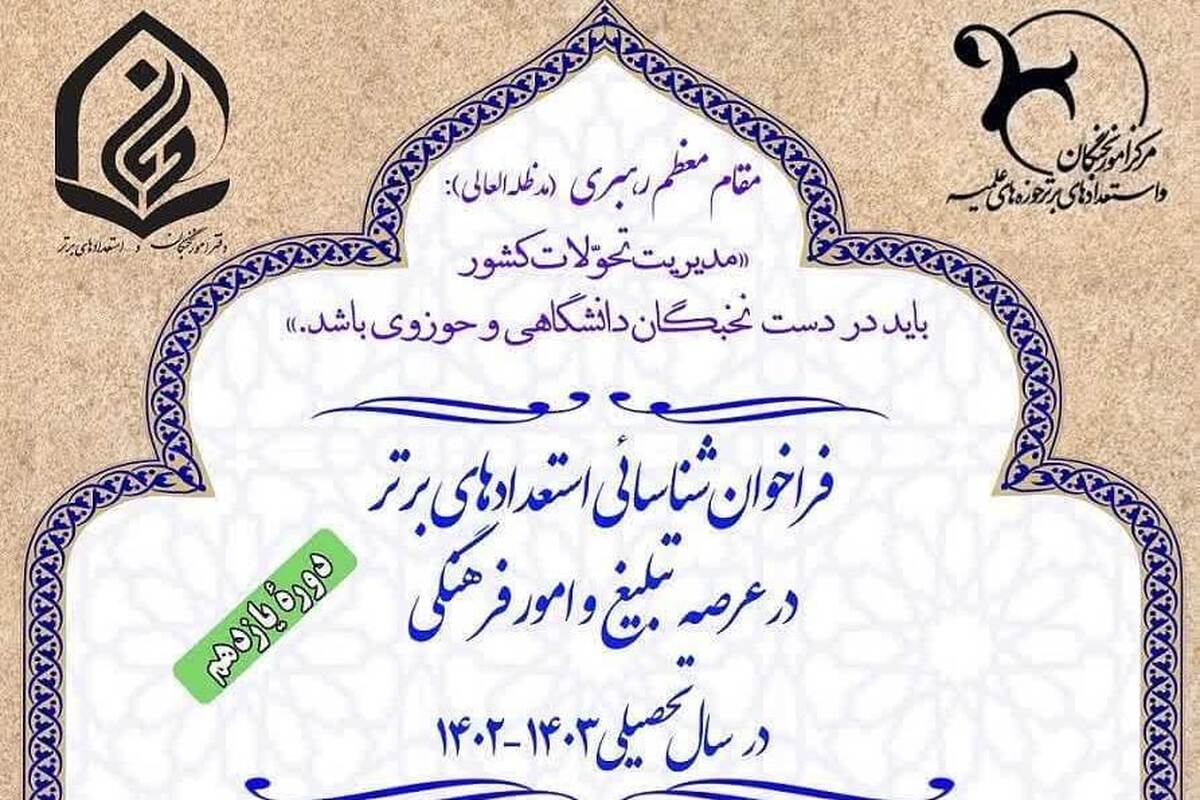 مرکز امور نخبگان
و استعدادهای برتر حوزه های علمیه
دفتر امور نخبگان و استعدادهای برتر
مقام معظم رهبری (مدظله العالی):
«مدیریت تحوّلات کشور
باید در دست نخبگان دانشگاهی و حوزوی باشد.»
فراخوان شناسائی استعدادهای برتر
در عرصه تبلیغ و امور فرهنگی
دورهٔ یازدهم
در سال تحصیلی ۱۴۰۳-۱۴۰۲